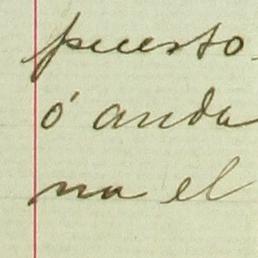 puesto
ó anda
na el